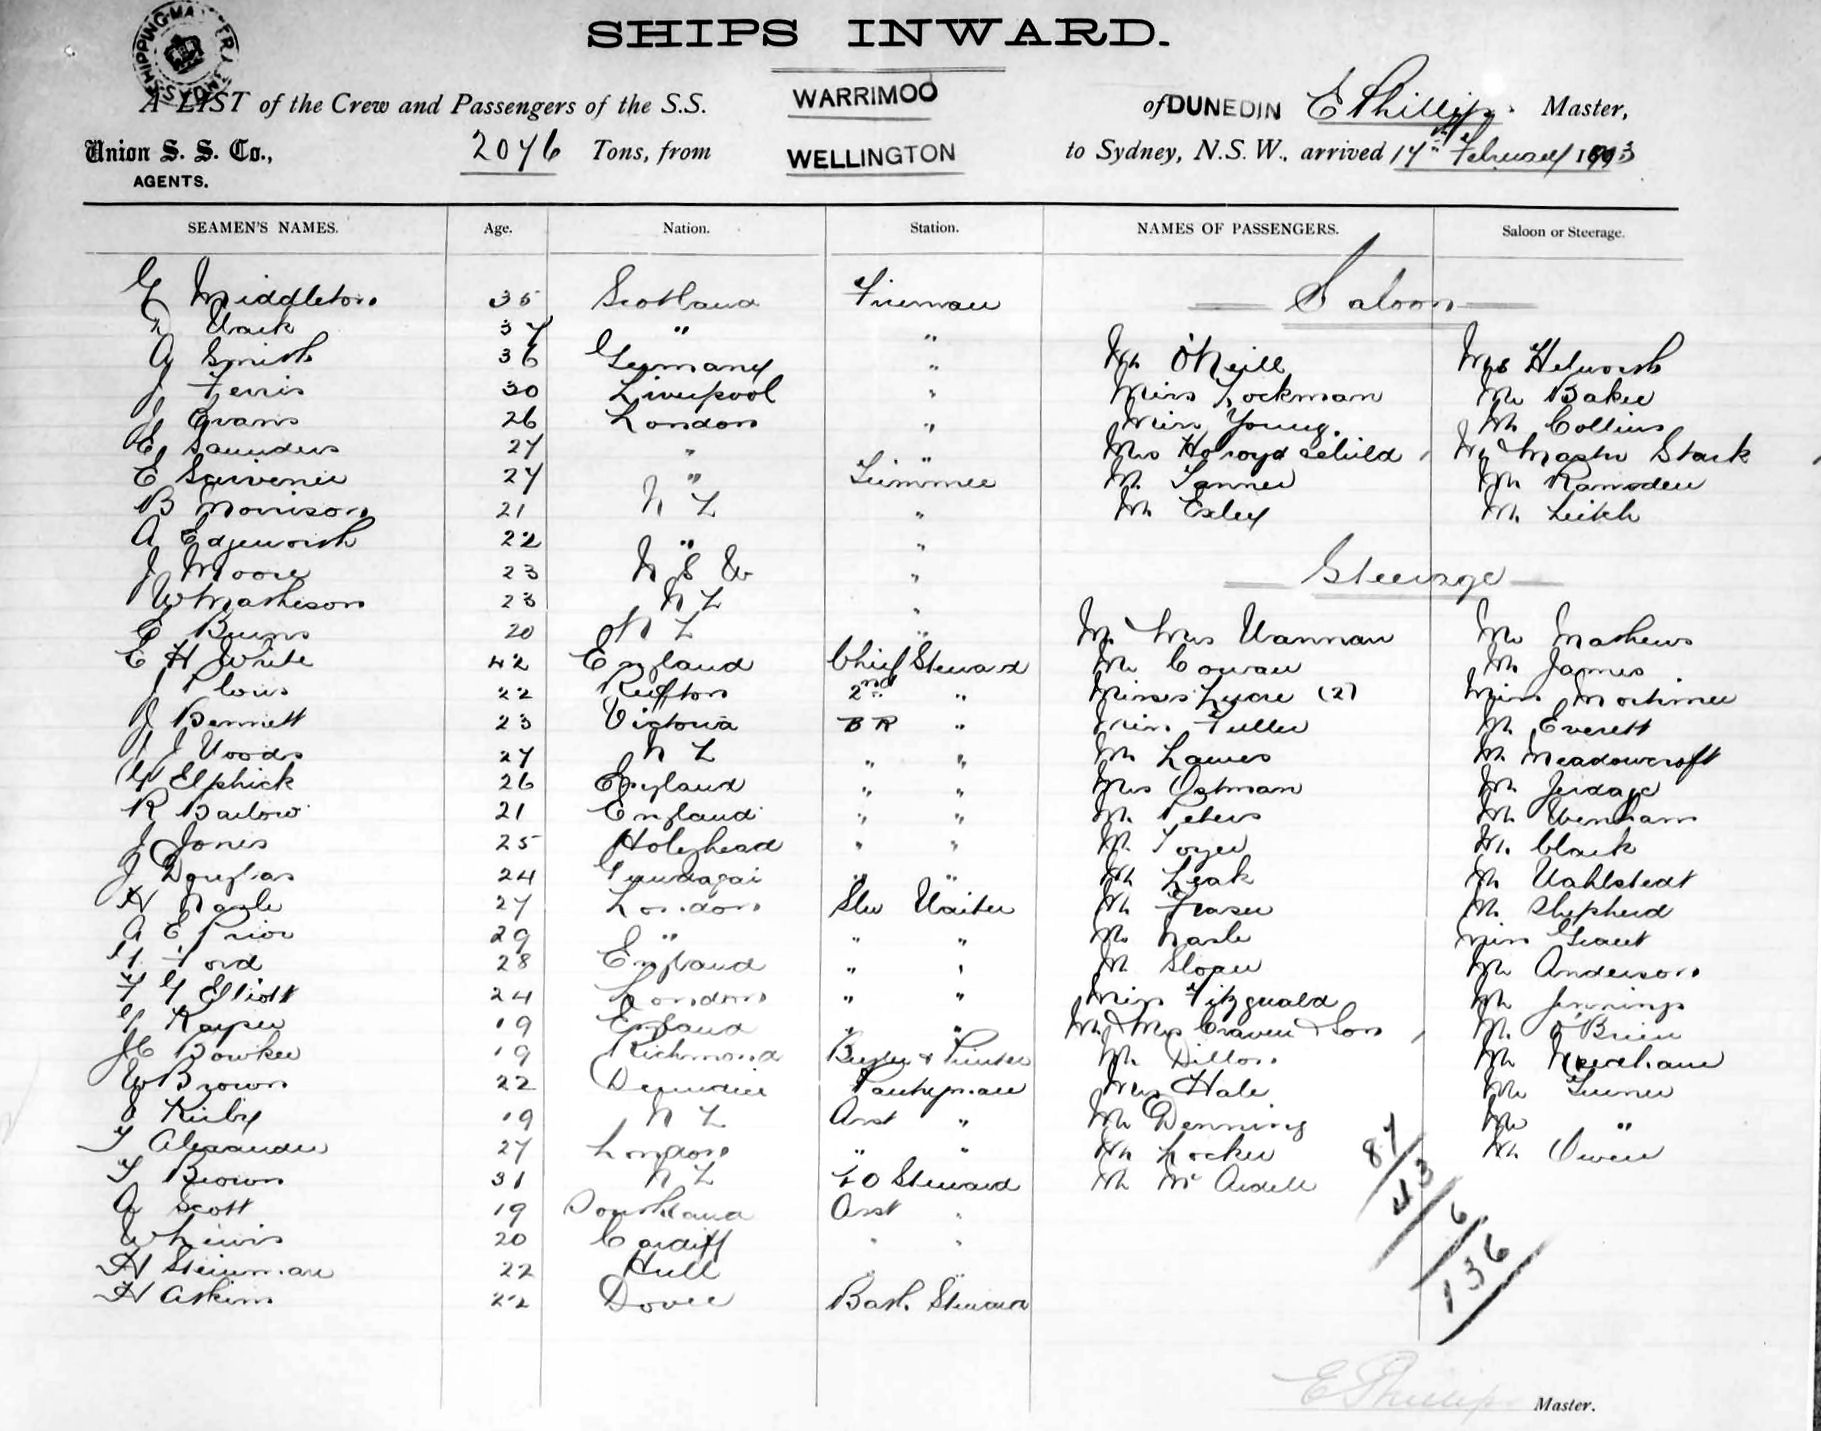 SHIPS INWARD.
A LIST of the Crew and Passengers of the S.S. WARRIMOO of DUNEDIN E Phillips. Master,
Union S. S. Co., 2076 Tons, from WELLINGTON to Sydney, N.S.W., arrived 14th February 1903
AGENTS.
SEAMEN'S NAMES. Age. Nation. Station. NAMES OF PASSENGERS. Saloon or Steerage.
G Middleton 35 Scotland Fireman Saloon
37 " "
A Smith 36 Germany " Mr O'Neill Mrs
J Ferris 30 Liverpool " Miss Lockman Mr Baker
J Evans 26 London " Miss Young. Mr Collins
E Saunders 27 " " Mrs Holroyd & child Master Stark
E Scrivener 27 " Trimmer Mr Tanner Mr Ramsden
B Morrison 21 N Z " Mr Exley Mr Leitch
A Edgeworth 22 " "
J Moore 23 N S W " Steerage
W Matheson 23 N Z "
E Burns 20 N Z " Mr & Mrs Mr Mathews
E H White 42 England Chief Steward Mr Cowan Mr James
J 22 Reefton 2nd " Misses (2) Miss Mortimer
J Bennett 23 Victoria B R " Miss Fuller Mr Everett
J Woods 27 N Z " " Mr Lawes Mr Meadowcroft
G Elphick 26 England " " Mrs Ostman Mr
R Barlow 21 England " " Mr Peters Mr Wenham
J Jones 25 Holyhead " " Mr Mr Clark
J Douglas 24 Gundagai " " Mr Leak Mr Wahlstedt
H Nagle 27 London Waiter Mr Fraser Mr Shepherd
A E Prior 29 " " " Mr Nash Miss Grant
Ford 28 England " " Mr Sloan Mr Anderson
F G Elliott 24 London " " Miss Fitzgerald Mr Jennings
19 England " " Mr & Mrs Craven & Son Mr O'Brien
Bowker 19 Richmond & Printer Mr Dillon Mr
W Brown 22 Dunedin Pantryman Mrs Hale Mr Turner
Kirby 19 N Z Asst " Mr Denning Mr "
T Alexander 27 London " " Mr Locker Mr Owen
T Brown 31 N Z F O Steward Mr McArdell
A Scott 19 Asst "
W Lewis 20 Cardiff " "
H 22 Hull " "
H Askins 22 Dover Bath Steward
87
43
6
136
E Phillips Master.